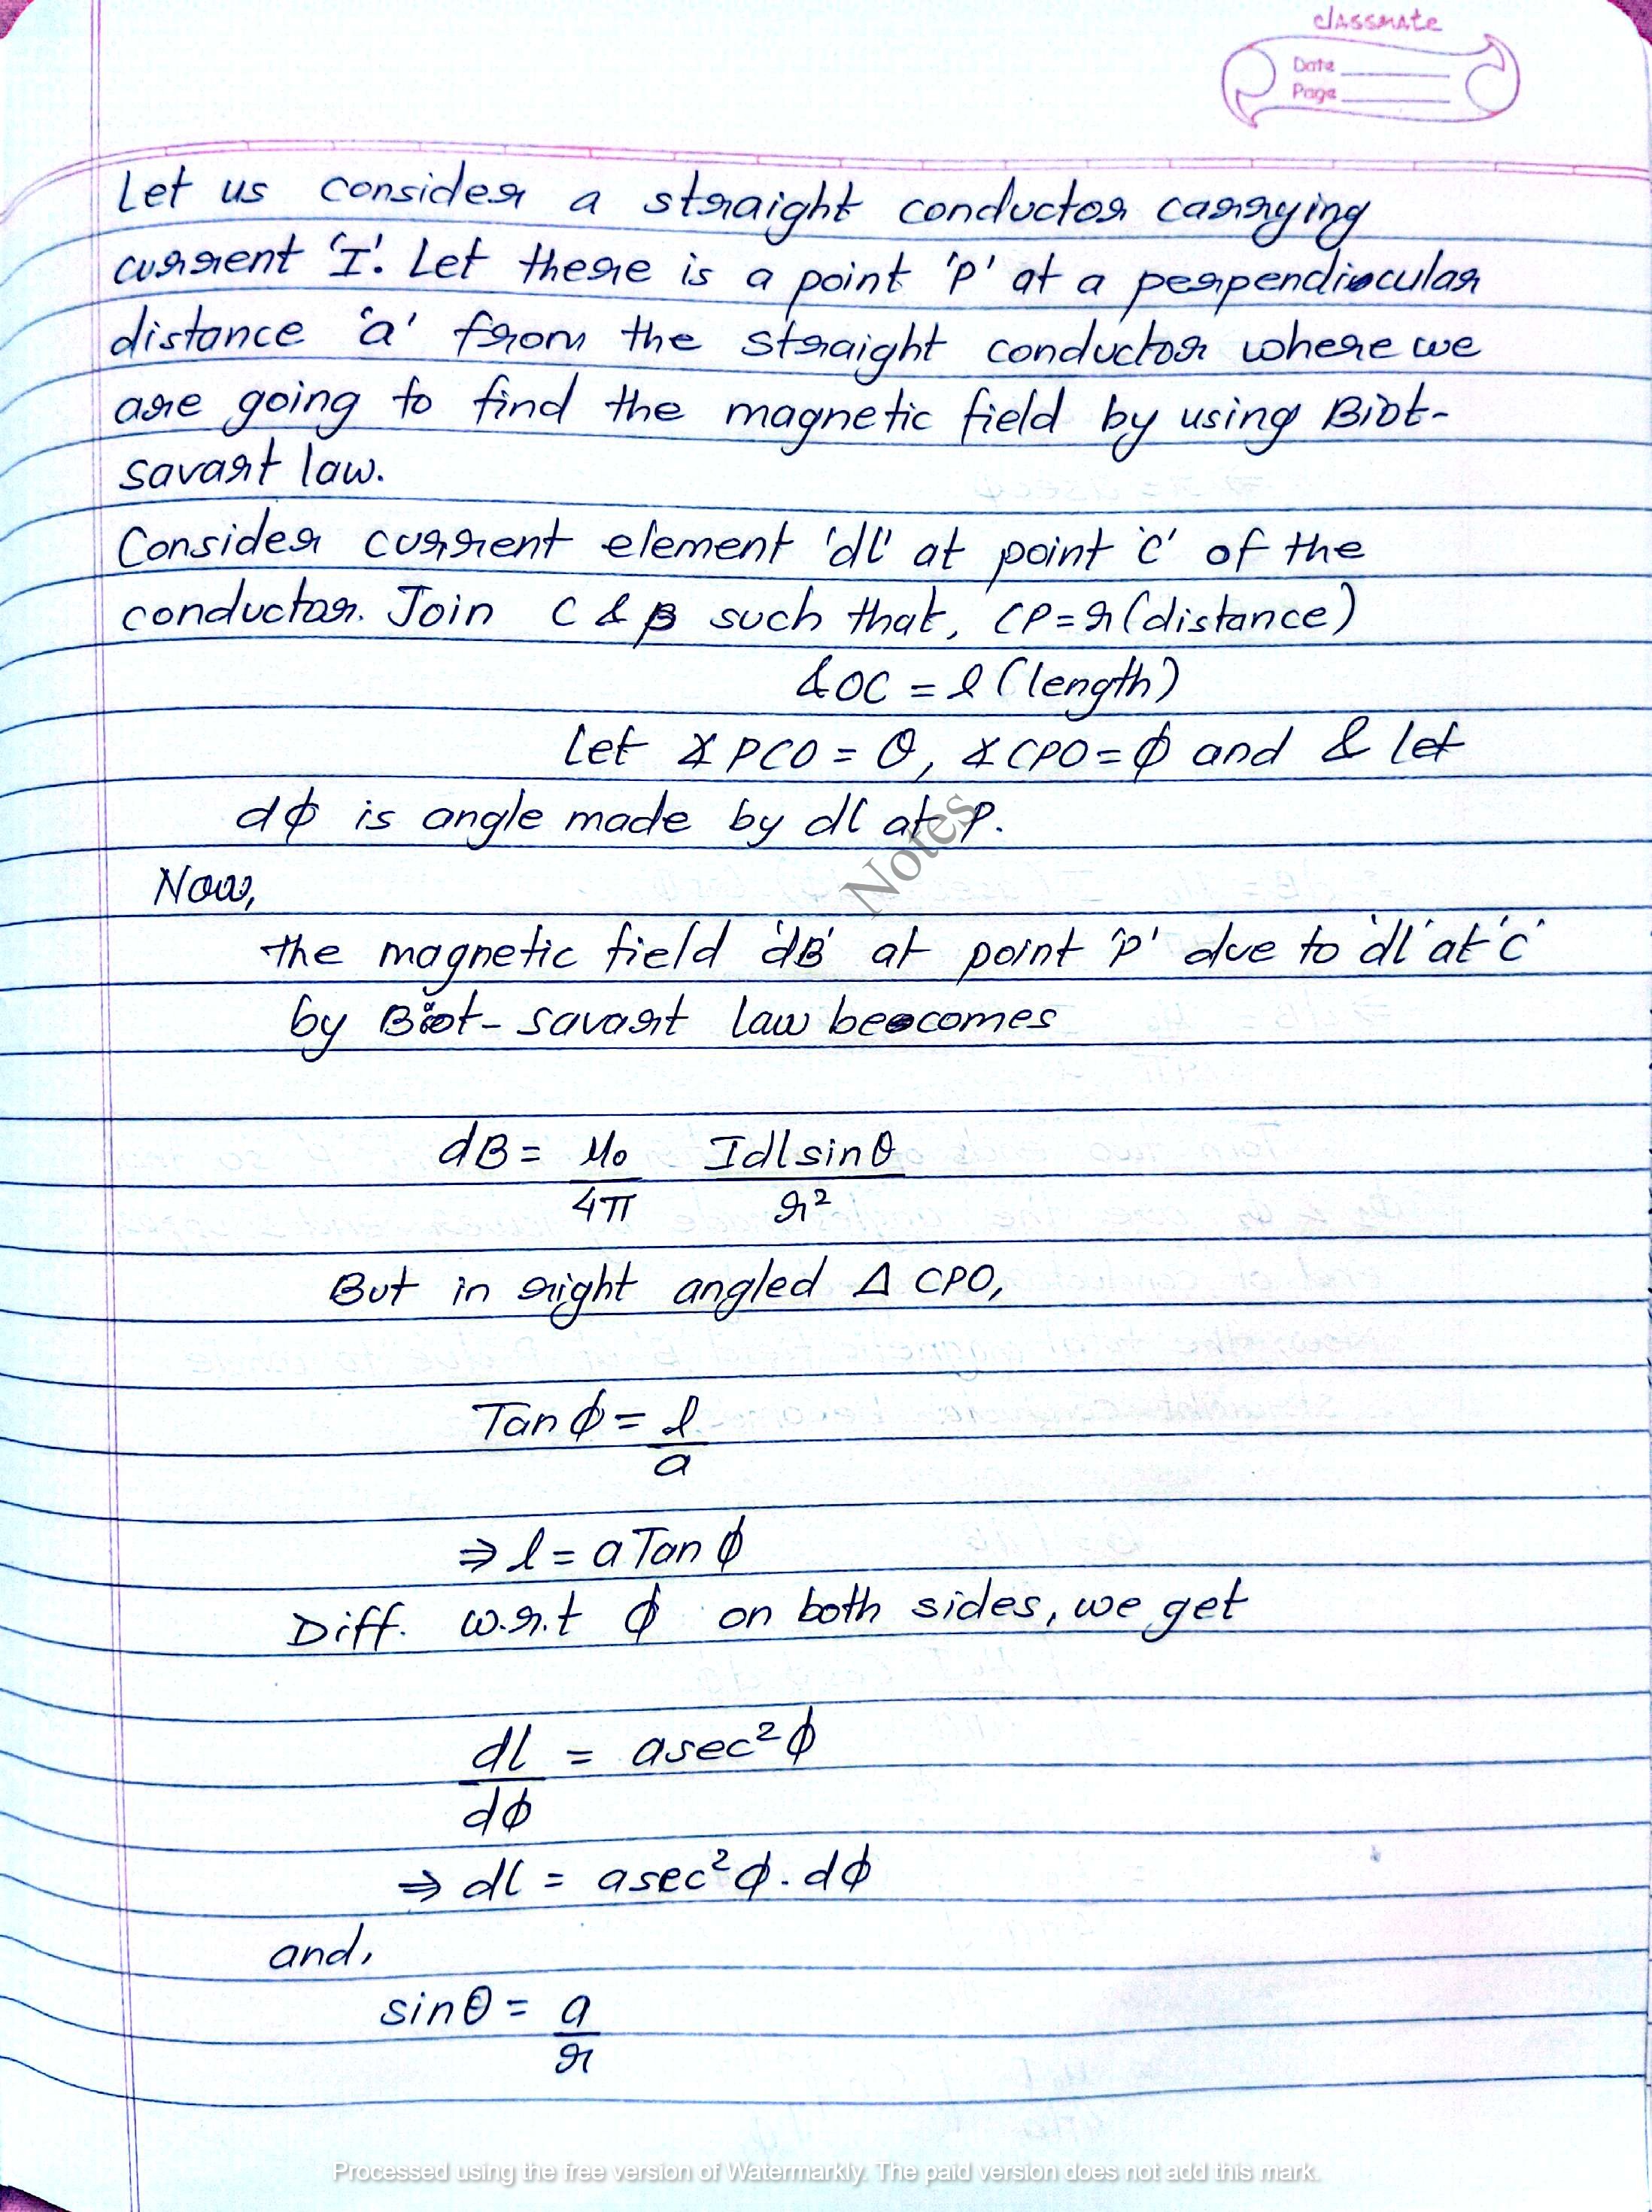 classmate
Date
Page
Let us consider a straight conductor carrying
current 'I'. Let there is a point 'P' at a perpendicular
distance 'a' from the straight conductor where we
are going to find the magnetic field by using Biot-
savart law.
Consider current element 'dl' at point 'c' of the
conductor. Join C & P such that, CP = r (distance)
& OC = l (length)
Let ∡ PCO = θ, ∡ CPO = ϕ and & let
dϕ is angle made by dl at P.
Notes
Now,
the magnetic field 'dB' at point 'P' due to 'dl' at 'c'
by Biot-savart law becomes
dB = μ₀/4π Idlsinθ/r²
But in right angled Δ CPO,
Tan ϕ = l/a
⇒ l = a Tan ϕ
Diff. w.r.t ϕ on both sides, we get
dl/dϕ = asec²ϕ
⇒ dl = asec²ϕ . dϕ
and,
sinθ = a/r
Processed using the free version of Watermarkly. The paid version does not add this mark.